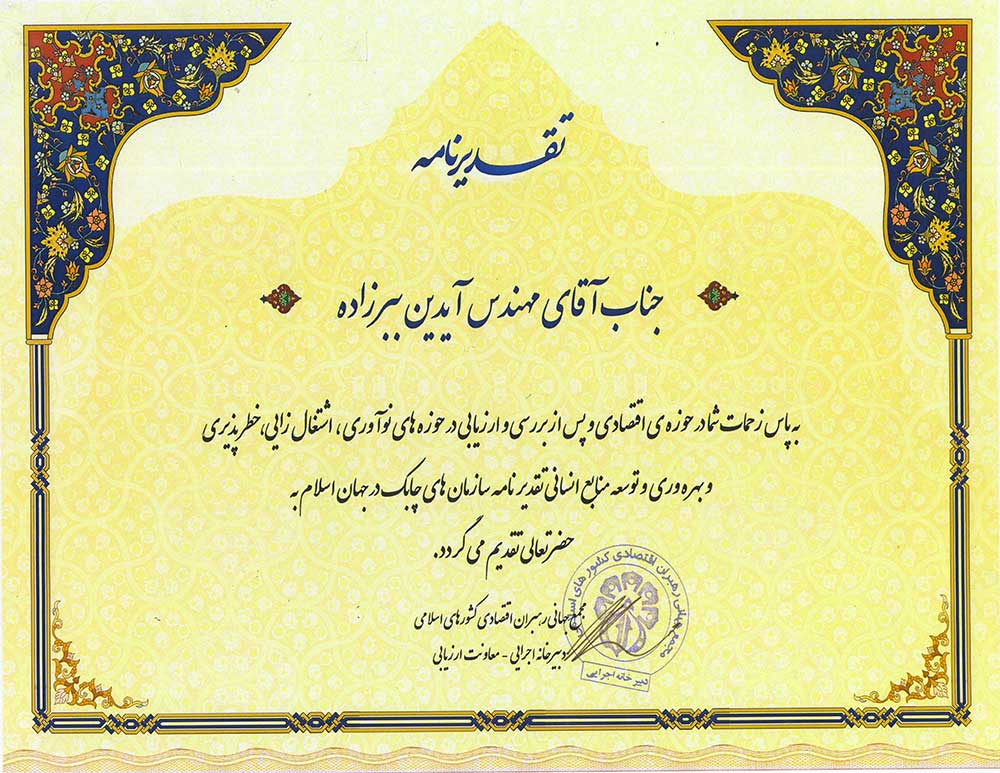 تقدیرنامه
جناب آقای مهندس آیدین ببرزاده
به پاس زحمات شما در حوزه ی اقتصادی و پس از بررسی و ارزیابی در حوزه های نوآوری، اشتغال زایی، خطرپذیری
و بهره وری و توسعه منابع انسانی تقدیر نامه سازمان های چابک در جهان اسلام به
حضرتعالی تقدیم می گردد.
مجمع جهانی رهبران اقتصادی کشورهای اسلامی
دبیرخانه اجرایی - معاونت ارزیابی
مجمع جهانی رهبران اقتصادی کشور های اسلامی
دبیر خانه اجرایی